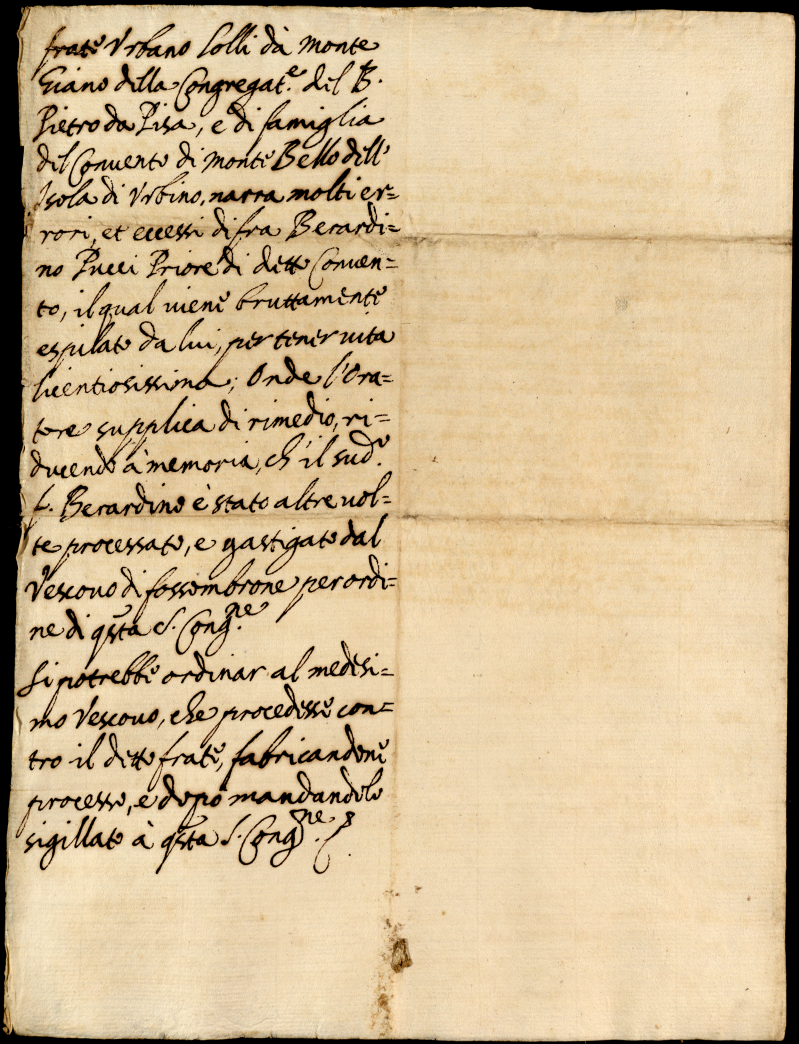 frate Vrbano Lolli da monte
Giano della Congregat.e del B.
Pietro da Pisa, e di famiglia
del Conuento di monte Bello dell'
Isola di Vrbino, narra molti er=
rori, et eccessi di fra Berardi=
no Pucci Priore di detto Conuen=
to, il qual uiene bruttamente
espilato da lui, per tener uita
licentiosissima; Onde l'Ora=
tore supplica di rimedio, ri=
ducendo à memoria, ch'il sud.o
f. Berardino è stato altre uol=
te processato, e gastigato dal
Vescouo di fossombrone per ordi=
ne di qsta S. Cong.ne
Si potrebbe ordinar al medesi=
mo Vescouo, che procedesse con=
tro il detto frate, fabricandone
processo, e dopò mandandolo
sigillato à qsta S. Cong.ne